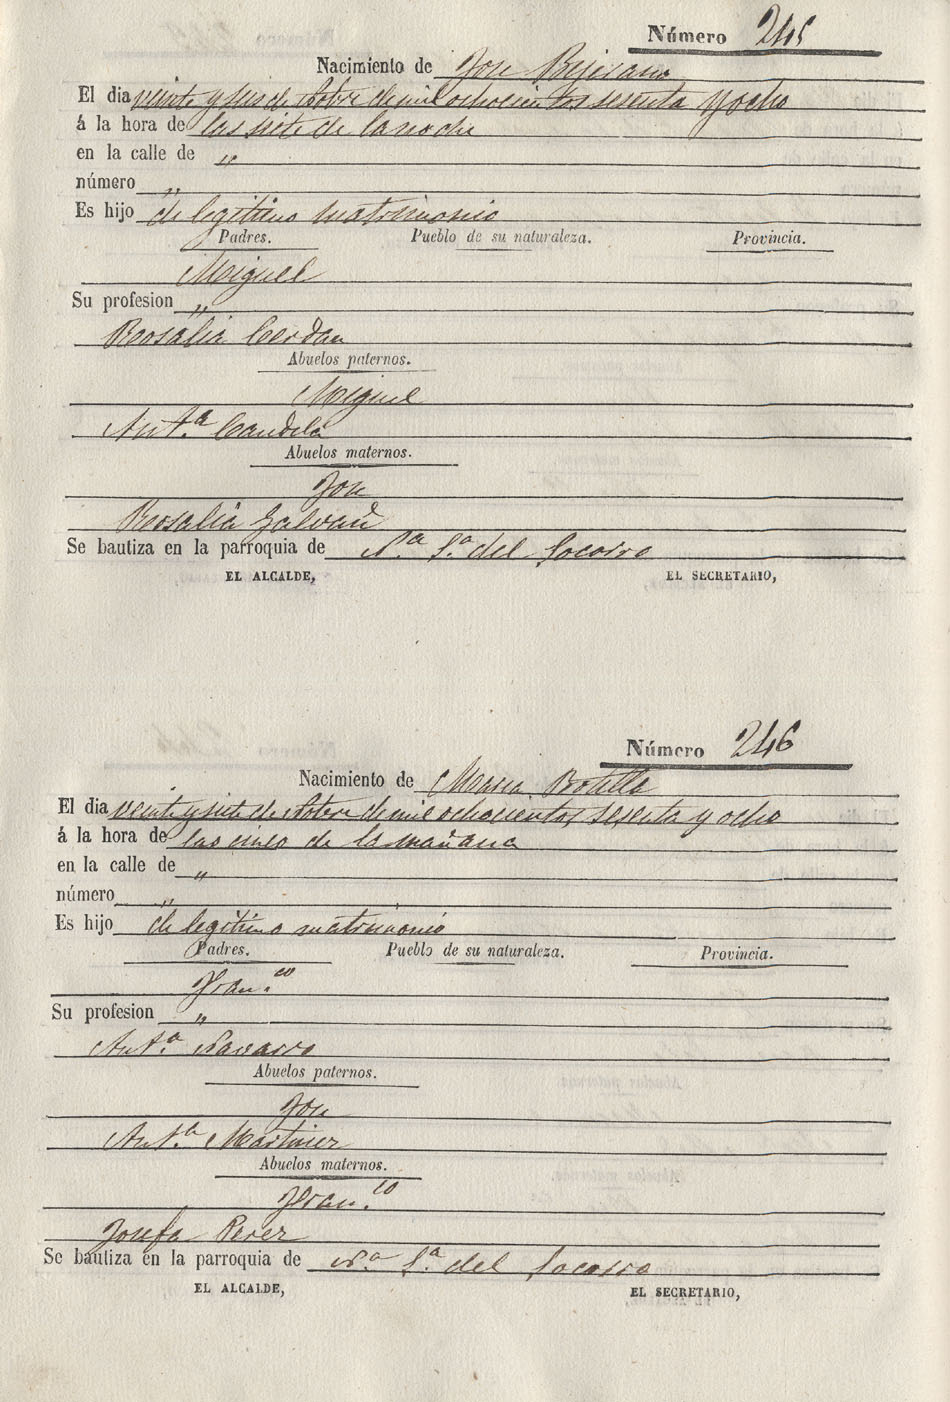 Número 245
Nacimiento de Jose Bejerano
El dia veinte y seis de Obre de mil ochocientos sesenta y ocho
á la hora de las siete de la noche
en la calle de „
número „
Es hijo de legitimo matrimonio
Padres. Pueblo de su naturaleza. Provincia.
Miguel
Su profesion „
Rosalia Cerdan
Abuelos paternos.
Miguel
Ant.ª Candela
Abuelos maternos.
Jose
Rosalia Galvañ
Se bautiza en la parroquia de N.ª S.ª del Socorro
EL ALCALDE, EL SECRETARIO,
Número 246
Nacimiento de Maria Botella
El dia veinte y siete de Obre de mil ochocientos sesenta y ocho
á la hora de las cinco de la mañana
en la calle de „
número „
Es hijo de legitimo matrimonio
Padres. Pueblo de su naturaleza. Provincia.
Fran.co
Su profesion „
Ant.ª Navarro
Abuelos paternos.
Jose
Ant.ª Martinez
Abuelos maternos.
Fran.co
Josefa Perez
Se bautiza en la parroquia de N.ª S.ª del Socorro
EL ALCALDE, EL SECRETARIO,